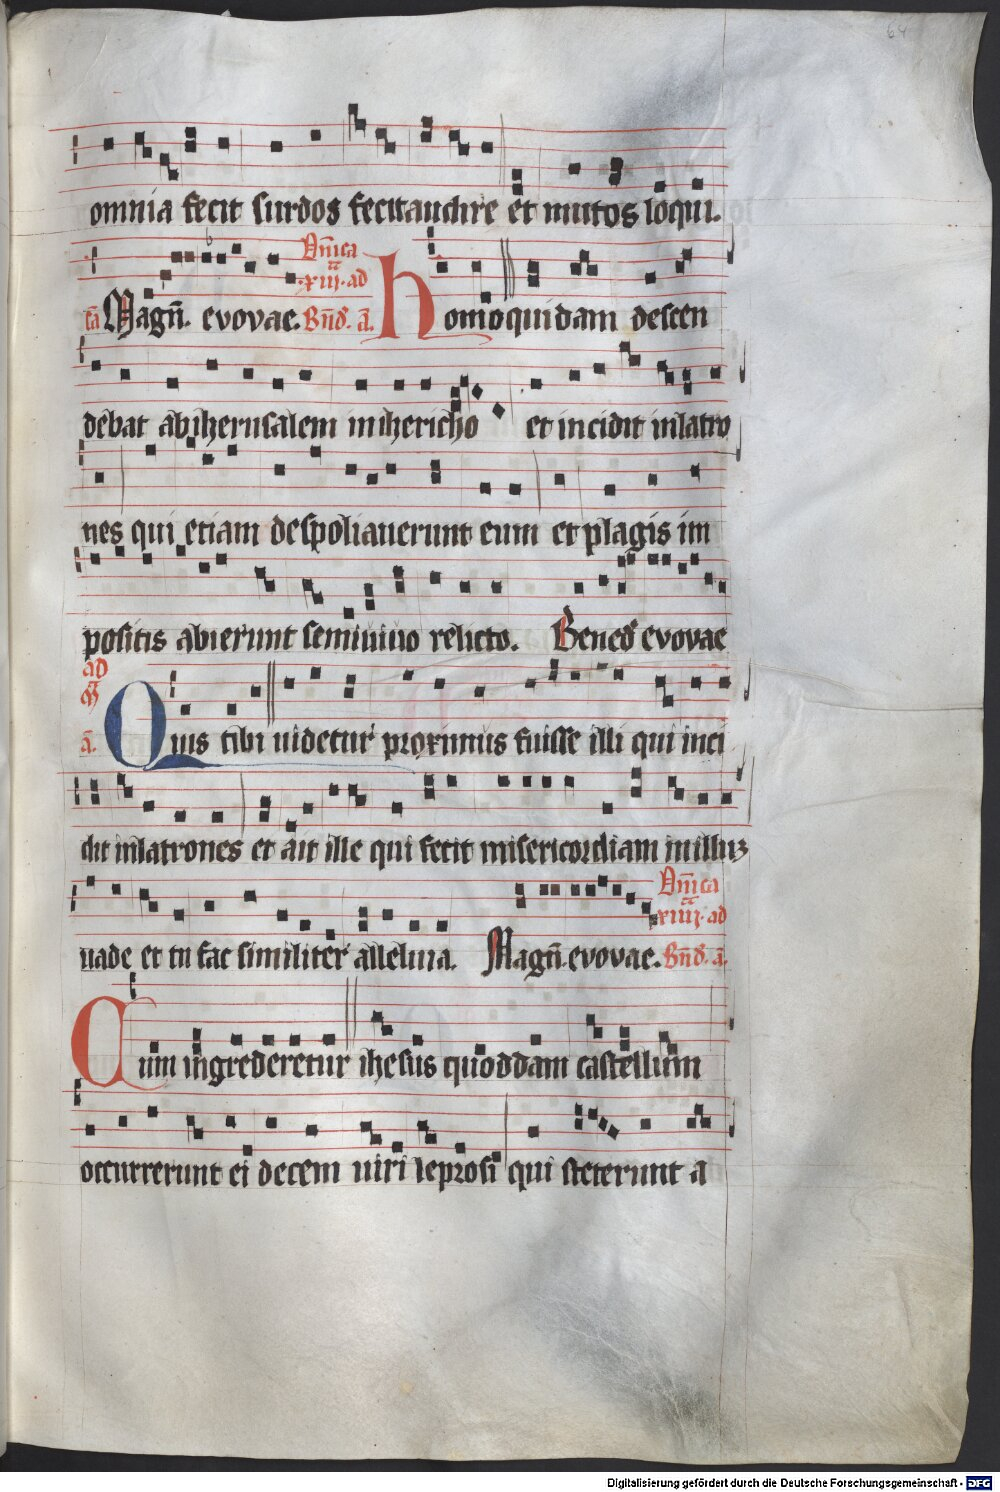 64
omnia fecit surdos fecit audire et mutos loqui.
Dn̄ica
xiij. ad
ca Magn̄. evovae. Bn̄d̄. a. homo quidam descen
debat ab iherusalem in ihericho et incidit in latro
nes qui etiam despoliauerunt eum et plagis im
positis abierunt seminiuo relicto. Bened̄ evovae
ad
M
a. Quis tibi uidetur proximus fuisse illi qui inci
dit in latrones et ait ille qui fecit misericordiam in illuz
Dn̄ica
xiiij. ad
uade et tu fac similiter alleluia. Magn̄. evovae. Bn̄d̄. a.
Cum ingrederetur ihesus quoddam castellum
occurrerunt ei decem uiri leprosi qui steterunt a
Digitalisierung gefördert durch die Deutsche Forschungsgemeinschaft - DFG